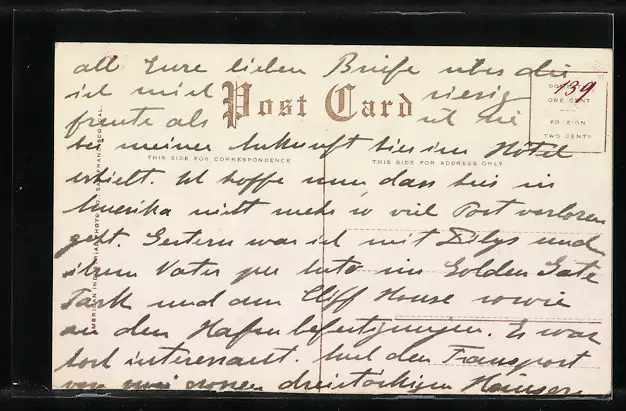 all Eure lieben Briefe über die
ich mich riesig
Post Card
139
DOMESTIC
ONE CENT
FOREIGN
TWO CENTS
freute als ich sie
bei meiner Ankunft hier im Hotel
THIS SIDE FOR CORRESPONDENCE
THIS SIDE FOR ADDRESS ONLY
erhielt. Ich hoffe nun, dass hier in
Amerika nicht mehr so viel Post verloren
geht. Gestern war ich mit Dilys und
ihrem Vater per Auto im Golden Gate
Park und dem Cliff House sowie
an den Hafenbefestigungen. Es war
hoch interessant. Auch den Transport
von zwei grossen dreistöckigen Häusern